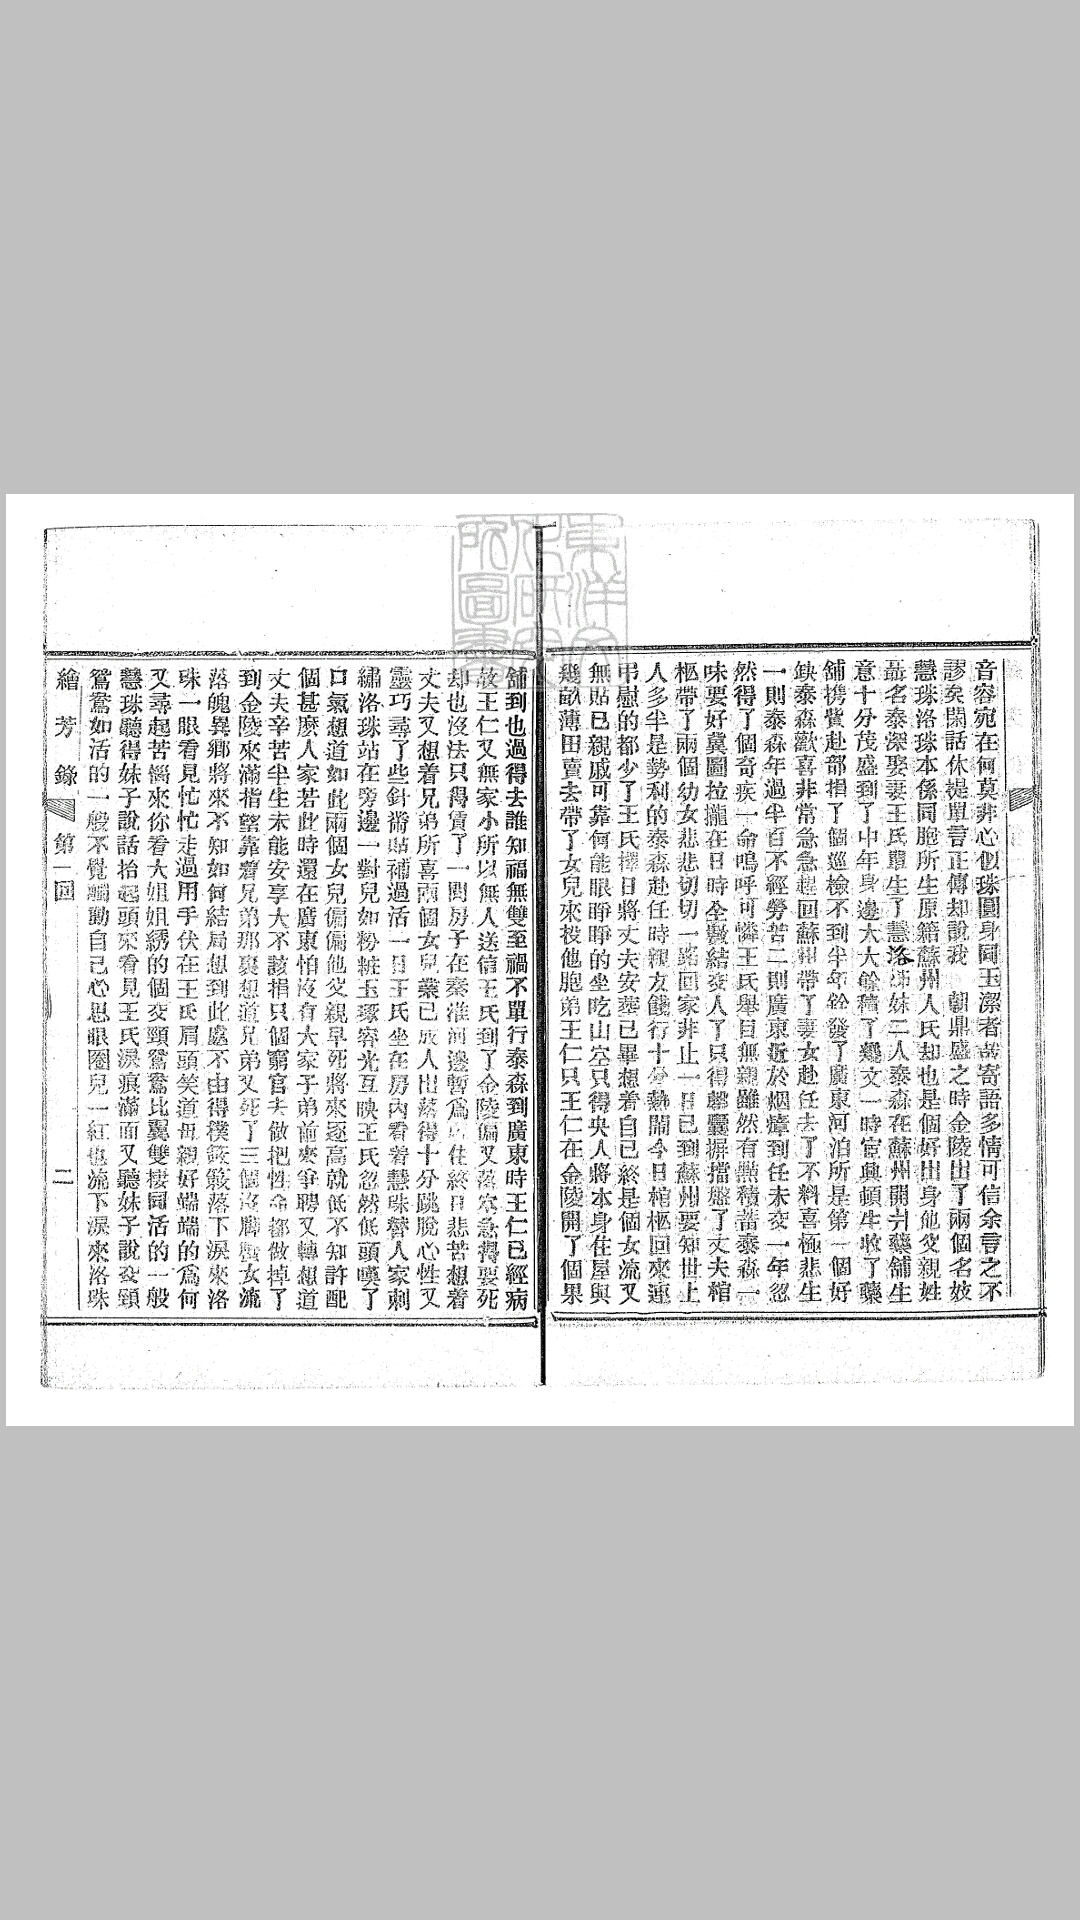 音容宛在何莫非心似珠圓身同玉潔者哉寄語多情可信余言之不
謬矣閑話休提單言正傳却說我 朝鼎盛之時金陵出了兩個名妓
慧珠洛珠本係同胞所生原籍蘇州人氏却也是個好出身他父親姓
聶名泰深娶妻王氏單生了慧洛姊妹二人泰森在蘇州開爿藥舖生
意十分茂盛到了中年身邊大大餘積了幾文一時宦興頓生收了藥
舖携貲赴部捐了個巡檢不到半年銓發了廣東河泊所是第一個好
缺泰森歡喜非常急急趕回蘇州帶了妻女赴任去了不料喜極悲生
一則泰森年過半百不經勞苦二則廣東近於烟瘴到任未交一年忽
然得了個奇疾一命嗚呼可憐王氏舉目無親雖然有點積蓄泰森一
味要好冀圖拉攏在日時全數結交人了只得罄囊摒擋盤了丈夫棺
柩帶了兩個幼女悲悲切切一路回家非止一日已到蘇州要知世上
人多半是勢利的泰森赴任時親友餞行十分熱鬧今日棺柩回來連
弔慰的都少了王氏擇日將丈夫安葬已畢想着自己終是個女流又
無貼已親戚可靠何能眼睜睜的坐吃山空只得央人將本身住屋與
幾畝薄田賣去帶了女兒來投他胞弟王仁只王仁在金陵開了個果
舖到也過得去誰知福無雙至禍不單行泰森到廣東時王仁已經病
故王仁又無家小所以無人送信王氏到了金陵偏又落空急得要死
却也沒法只得賃了一間房子在秦淮河邊暫爲居住終日悲苦想着
丈夫又想着兄弟所喜兩個女兒業已成人出落得十分跳脫心性又
靈巧尋了些針黹貼補過活一日王氏坐在房內看着慧珠替人家刺
繡洛珠站在旁邊一對兒如粉粧玉琢容光互映王氏忽然低頭嘆了
口氣想道如此兩個女兒偏偏他父親早死將來逐高就低不知許配
個甚麽人家若此時還在廣東怕沒有大家子弟前來爭聘又轉想道
丈夫辛苦半生未能安享大不該捐只個窮官去做把性命都做掉了
到金陵來滿指望靠着兄弟那裏想道兄弟又死了三個沒脚蟹女流
落魄異鄉將來不知如何結局想到此處不由得撲簌簌落下淚來洛
珠一眼看見忙忙走過用手伏在王氏肩頭笑道母親好端端的爲何
又尋起苦惱來你看大姐姐綉的個交頸鴛鴦比翼雙棲同活的一般
慧珠聽得妹子說話抬起頭來看見王氏淚痕滿面又聽妹子說交頸
鴛鴦如活的一般不覺觸動自己心思眼圈兒一紅也流下淚來洛珠
繪芳錄 第一回 二